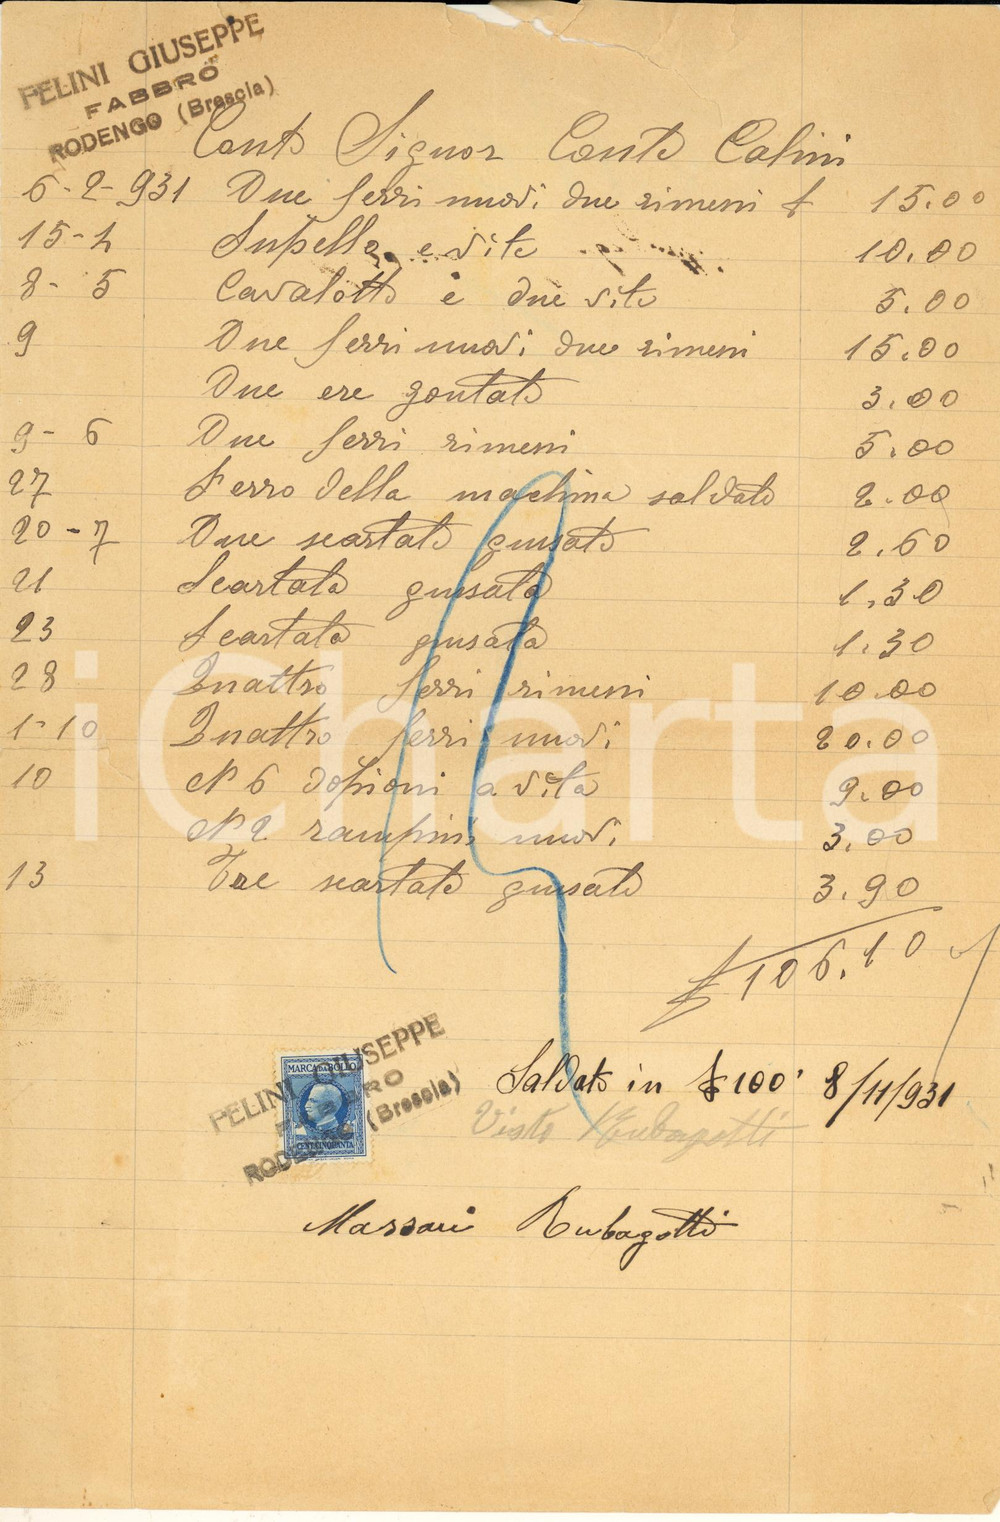 FELINI GIUSEPPE
FABBRO
RODENGO (Brescia)
Conto Signor Conte Calini
6-2-931 Due ferri nuovi due rimeni £ 15.00
15-4 e vite 10.00
8-5 Cavalotto e due vite 5.00
9 Due ferri nuovi due rimeni 15.00
Due ere gontate 3.00
9-6 Due ferri rimeni 5.00
27 Ferro della machina saldato 2.00
20-7 Due scartate giusate 2.60
21 Scartata giusata 1.30
23 Scartata giusata 1.30
28 Quattro ferri rimeni 10.00
1-10 Quattro ferri nuovi 20.00
10 N 6 dopioni a vita 9.00
N 2 rampini nuovi 3.00
13 Tre scartate giusate 3.90
£ 106.10
iCharta
MARCA DA BOLLO
CENT. CINQUANTA
FELINI GIUSEPPE
FABBRO
RODENGO (Brescia)
Saldato in £ 100 8/11/931
Visto Rubagotti
Massari Rubagotti